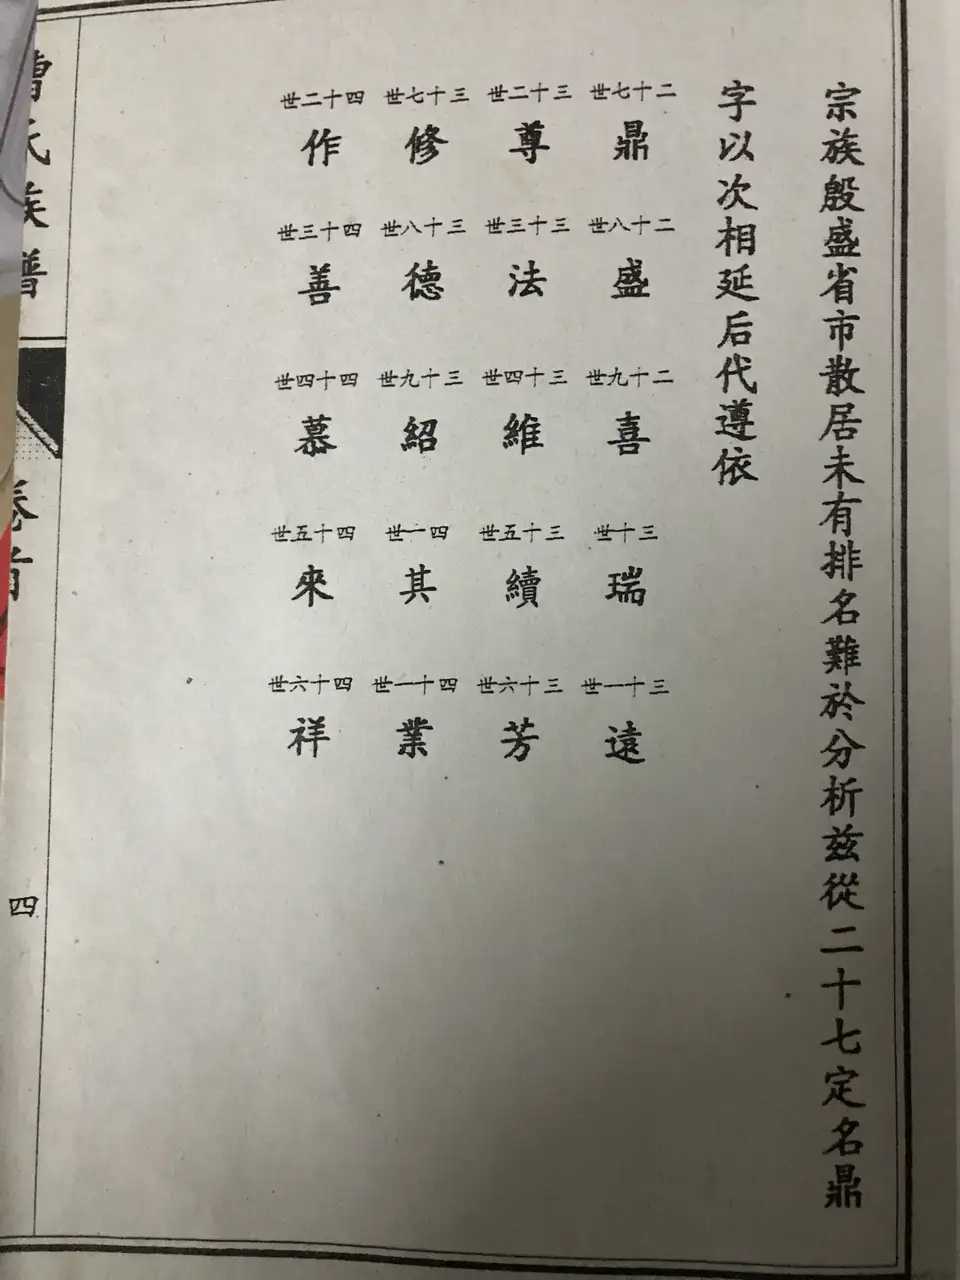 宗族殷盛省市散居未有排名難於分析兹從二十七定名鼎
字以次相延后代遵依
二十七世
鼎
二十八世
盛
二十九世
喜
三十世
瑞
三十一世
遠
三十二世
尊
三十三世
法
三十四世
維
三十五世
續
三十六世
芳
三十七世
修
三十八世
德
三十九世
紹
四一世
其
四十一世
業
四十二世
作
四十三世
善
四十四世
慕
四十五世
來
四十六世
祥
氏族譜
卷首
四